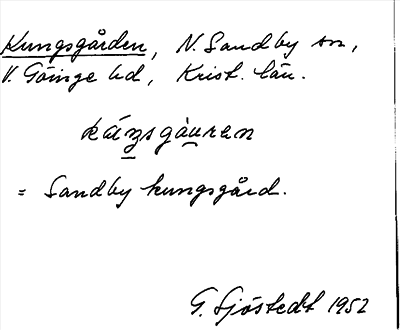 Kungsgården, N. Sandby sn,
V. Göinge hd, Krist. län.
káŋsgàu̱ren
= Sandby kungsgård.
G. Sjöstedt 1952